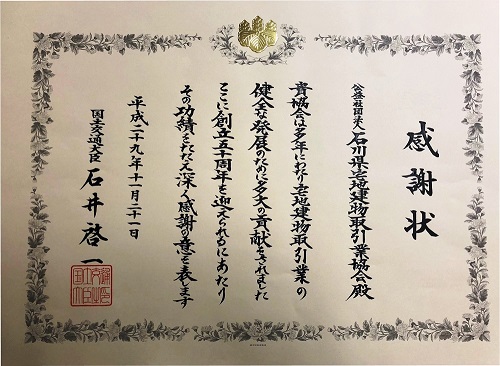 感謝状
公益社団法人 石川県宅地建物取引業協会殿
貴協会は多年にわたり宅地建物取引業の
健全な発展のために多大の貢献をされました
ここに創立五十周年を迎えられるにあたり
その功績をたたえ深く感謝の意を表します
平成二十九年十一月二十一日
国土交通大臣 石井啓一